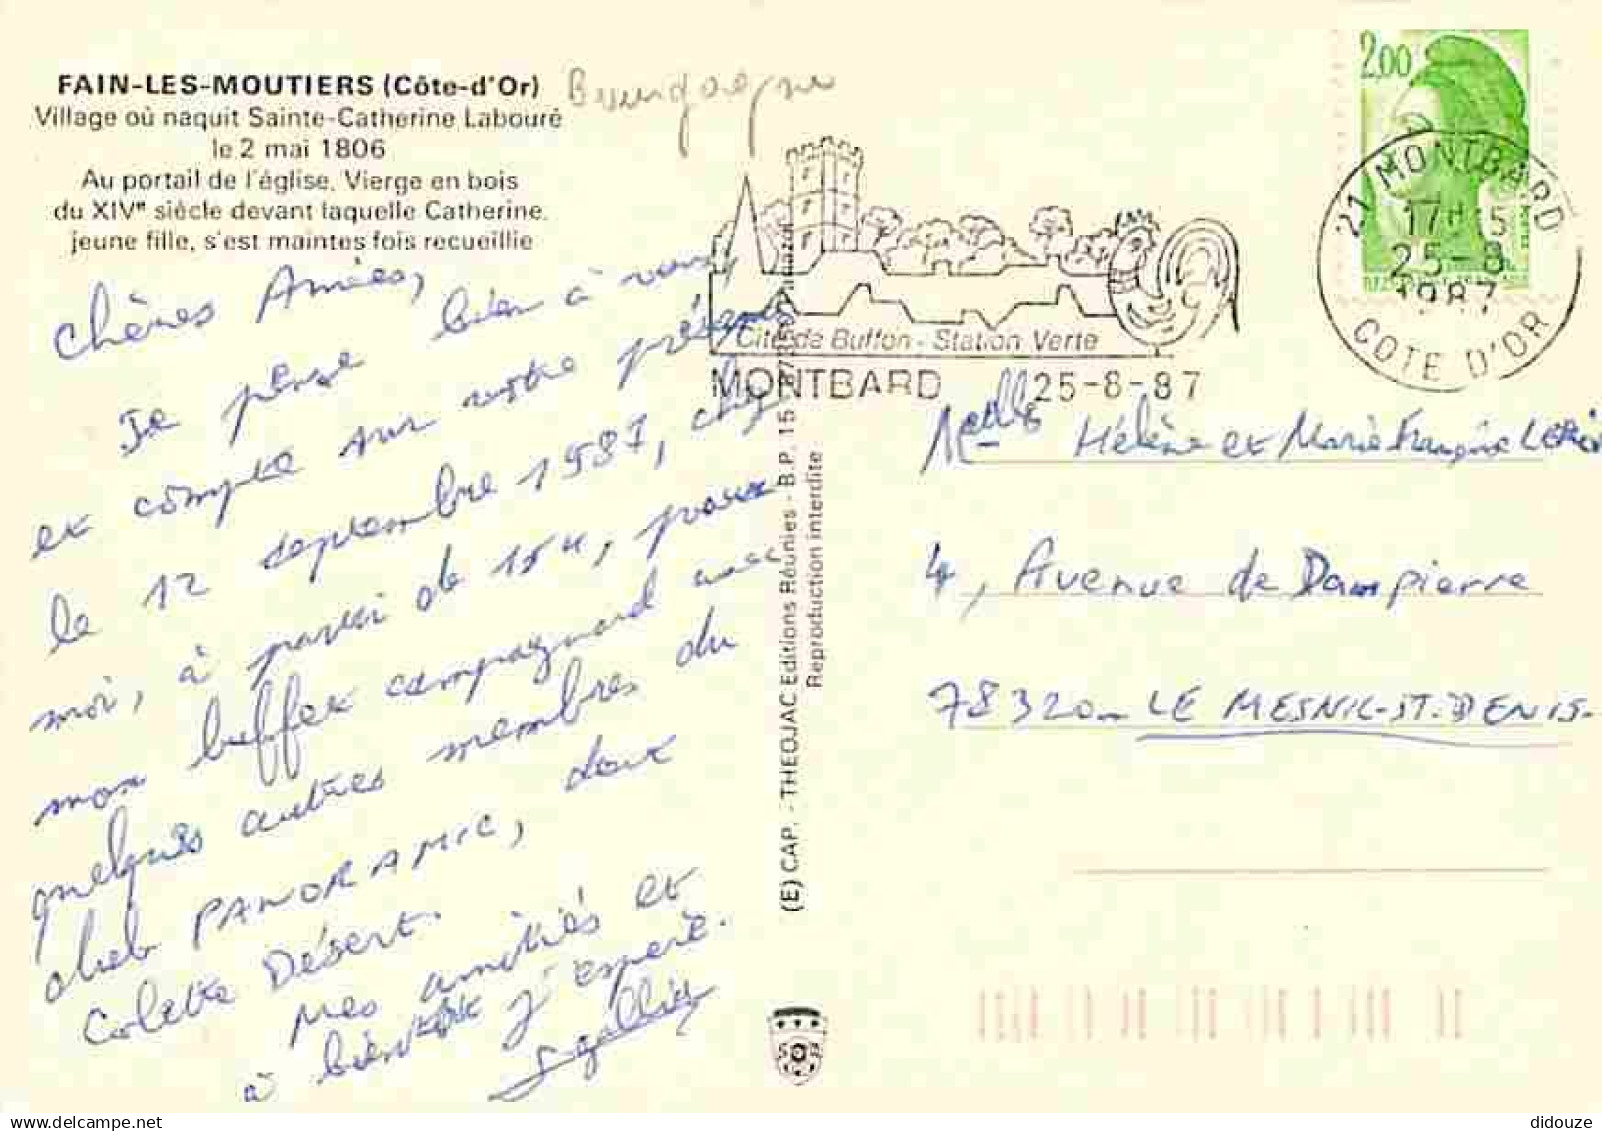 FAIN-LES-MOUTIERS (Côte-d'Or)
Village où naquit Sainte-Catherine Labouré
le 2 mai 1806
Au portail de l'église, Vierge en bois
du XIVe siècle devant laquelle Catherine,
jeune fille, s'est maintes fois recueillie
Chères Amies,
Je pense bien à vous,
et compte sur votre présence
le 12 septembre 1987, chez
moi, à partir de 15H, pour
mon buffet campagnard avec
quelques autres membres du
club PANORAMIC, dont
Colette Désert.
Mes amitiés et
à bientôt j'espère.
(E) CAP. - THEOJAC Editions Réunies - B.P. 15
Reproduction interdite
2,00
21 MONTBARD
17H15
25-8
1987
COTE D'OR
Cité de Buffon - Station Verte
MONTBARD 25-8-87
Melles Hélène et Marie Françoise
4, Avenue de Dampierre
78320 - LE MESNIL-ST.DENIS-
didouze